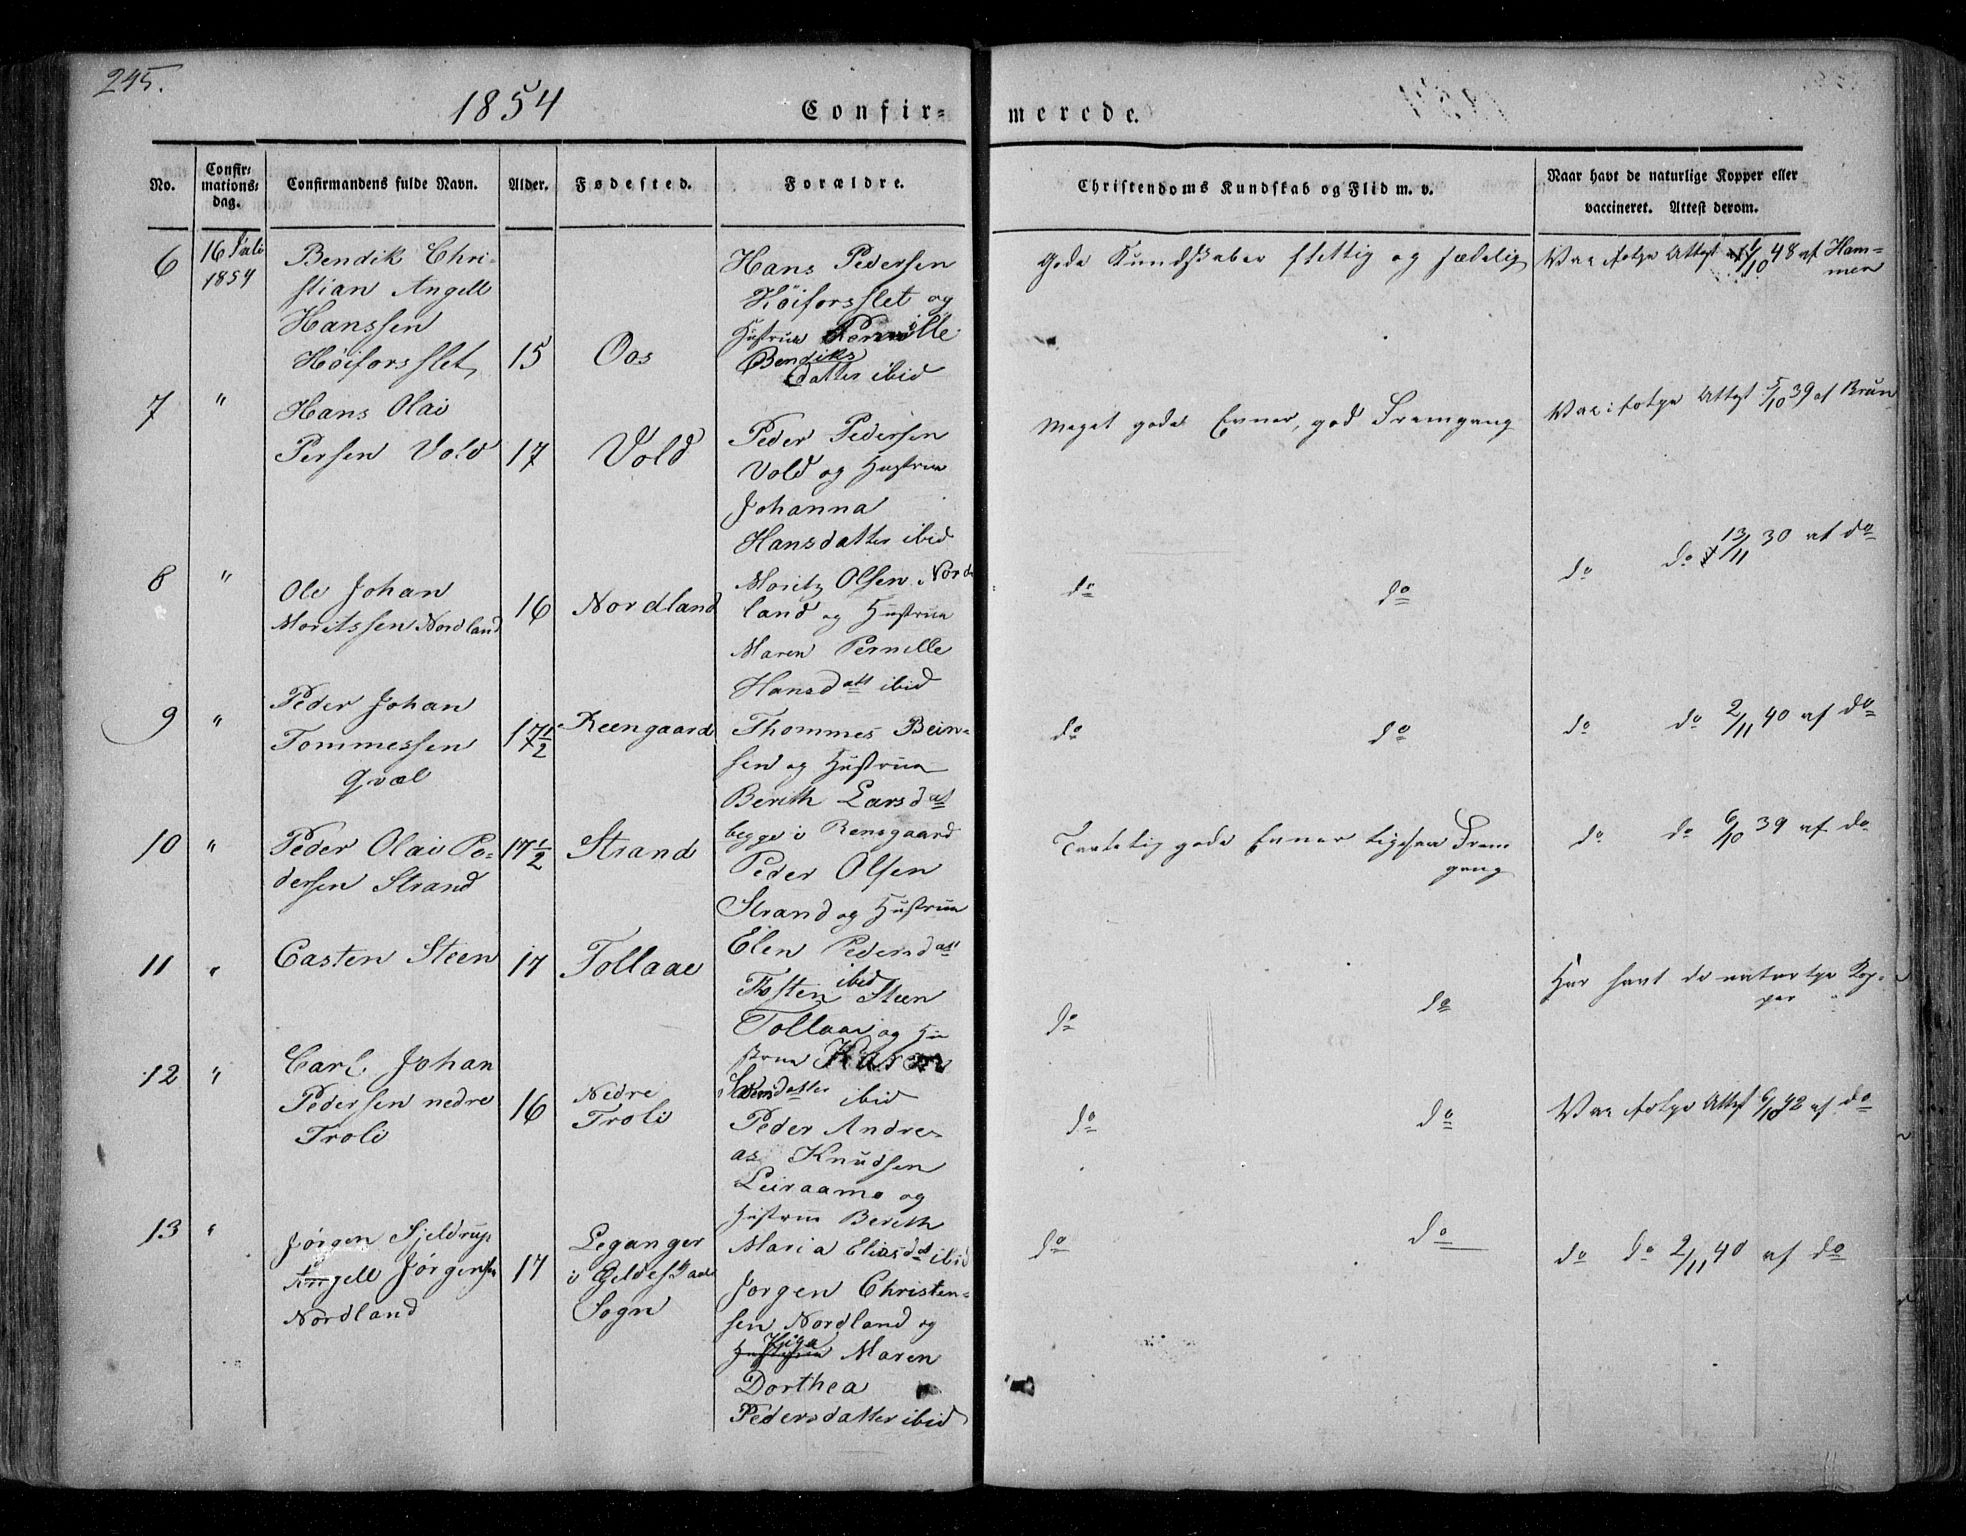 245.
1854
Confir-
merede.
No.
Confir-
mations-
dag.
Confirmandens fulde Navn.
Alder.
Fødested.
Forældre.
Christendoms Kundskab og Flid m. v.
Naar havt de naturlige Kopper eller
vaccineret. Attest derom.
6
16 Juli
1854
Bendik Chri-
stian Angell
Hanssen
Høiforsslet
15
Oos
Hans Pedersen
Høiforsslet og
Hustrue Pernille
Bendiks
datter ibid
Gode Kundskaber flittig og sædelig
Vac ifølge Attest 1/10 48 af Ham-
men
7
"
Hans Olai
Persen Vold
17
Vold
Peder Pedersen
Vold og Hustrue
Johanna
Hansdatter ibid
Meget gode Evner, god Fremgang
Vac ifølge Attest 5/10 39 af Brun
8
"
Ole Johan
Moritssen Nordland
16
Nordland
Moritz Olsen Nord
land og Hustrue
Maren Pernille
Hansdatt ibid
do
do
do do 13/11 30 af do
9
"
Peder Johan
Tommessen
Qvæl
17 1/2
Reengaard
Thommes Bein-
sen og Hustrue
Berith Larsdat
begge i Rensgaard
do
do
do do 2/11 40 af do
10
"
Peder Olai Pe-
dersen Strand
17 1/2
Strand
Peder Olsen
Strand og Hustrue
Elen Pedersdat
ibid
Taalelig gode Evner ligesaa Frem
gang
do do 6/10 39 af do
11
"
Casten Steen
17
Tollaae
Thosten Steen
Tollaae og Hu
strue Karen
Steensdatter
ibid
do
do
Har havt de naturlge Kop-
per
12
"
Carl Johan
Pedersen nedre
Troli
16
Nedre
Troli
Peder Andre-
as Knudsen
Leiraamo og
Hustrue Berith
Maria Eliasdat ibid
do
do
Vac ifølge Attest 6/10 42 af do
13
"
Jørgen Sjeldrup
Angell Jørgensen
Nordland
17
Leganger
i Gildeskaals
Sogn
Jorgen Christen-
sen Nordland og
Hustrue Pige Maren
Dorthea
Pedersdatter ibid
do
do
do do 2/11 40 af do